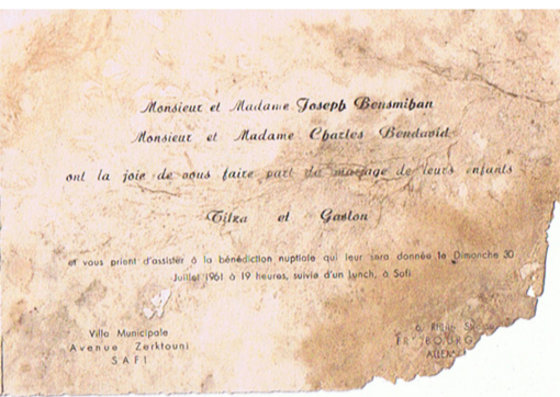 Monsieur et Madame Joseph Bensmihan
Monsieur et Madame Charles Bendavid
ont la joie de vous faire part du mariage de leurs enfants
et Gaston
et vous prient d'assister à la bénédiction nuptiale qui leur sera donnée le Dimanche 30
Juillet 1961 à 19 heures, suivie d'un lunch, à Safi
Villa Municipale
Avenue Zerktouni
SAFI
6,